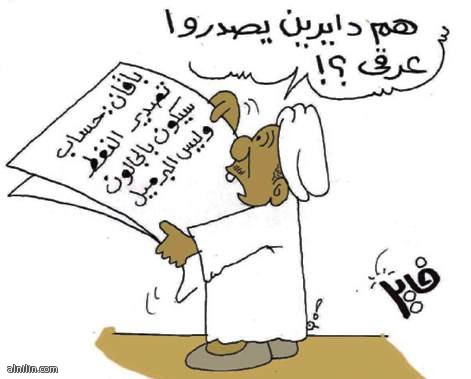 هم دايرين يصدروا
عرقي ؟!
باقان : حساب
تصدير النفط
سيكون بالجالون
وليس البرميل
فايز
alnilin.com